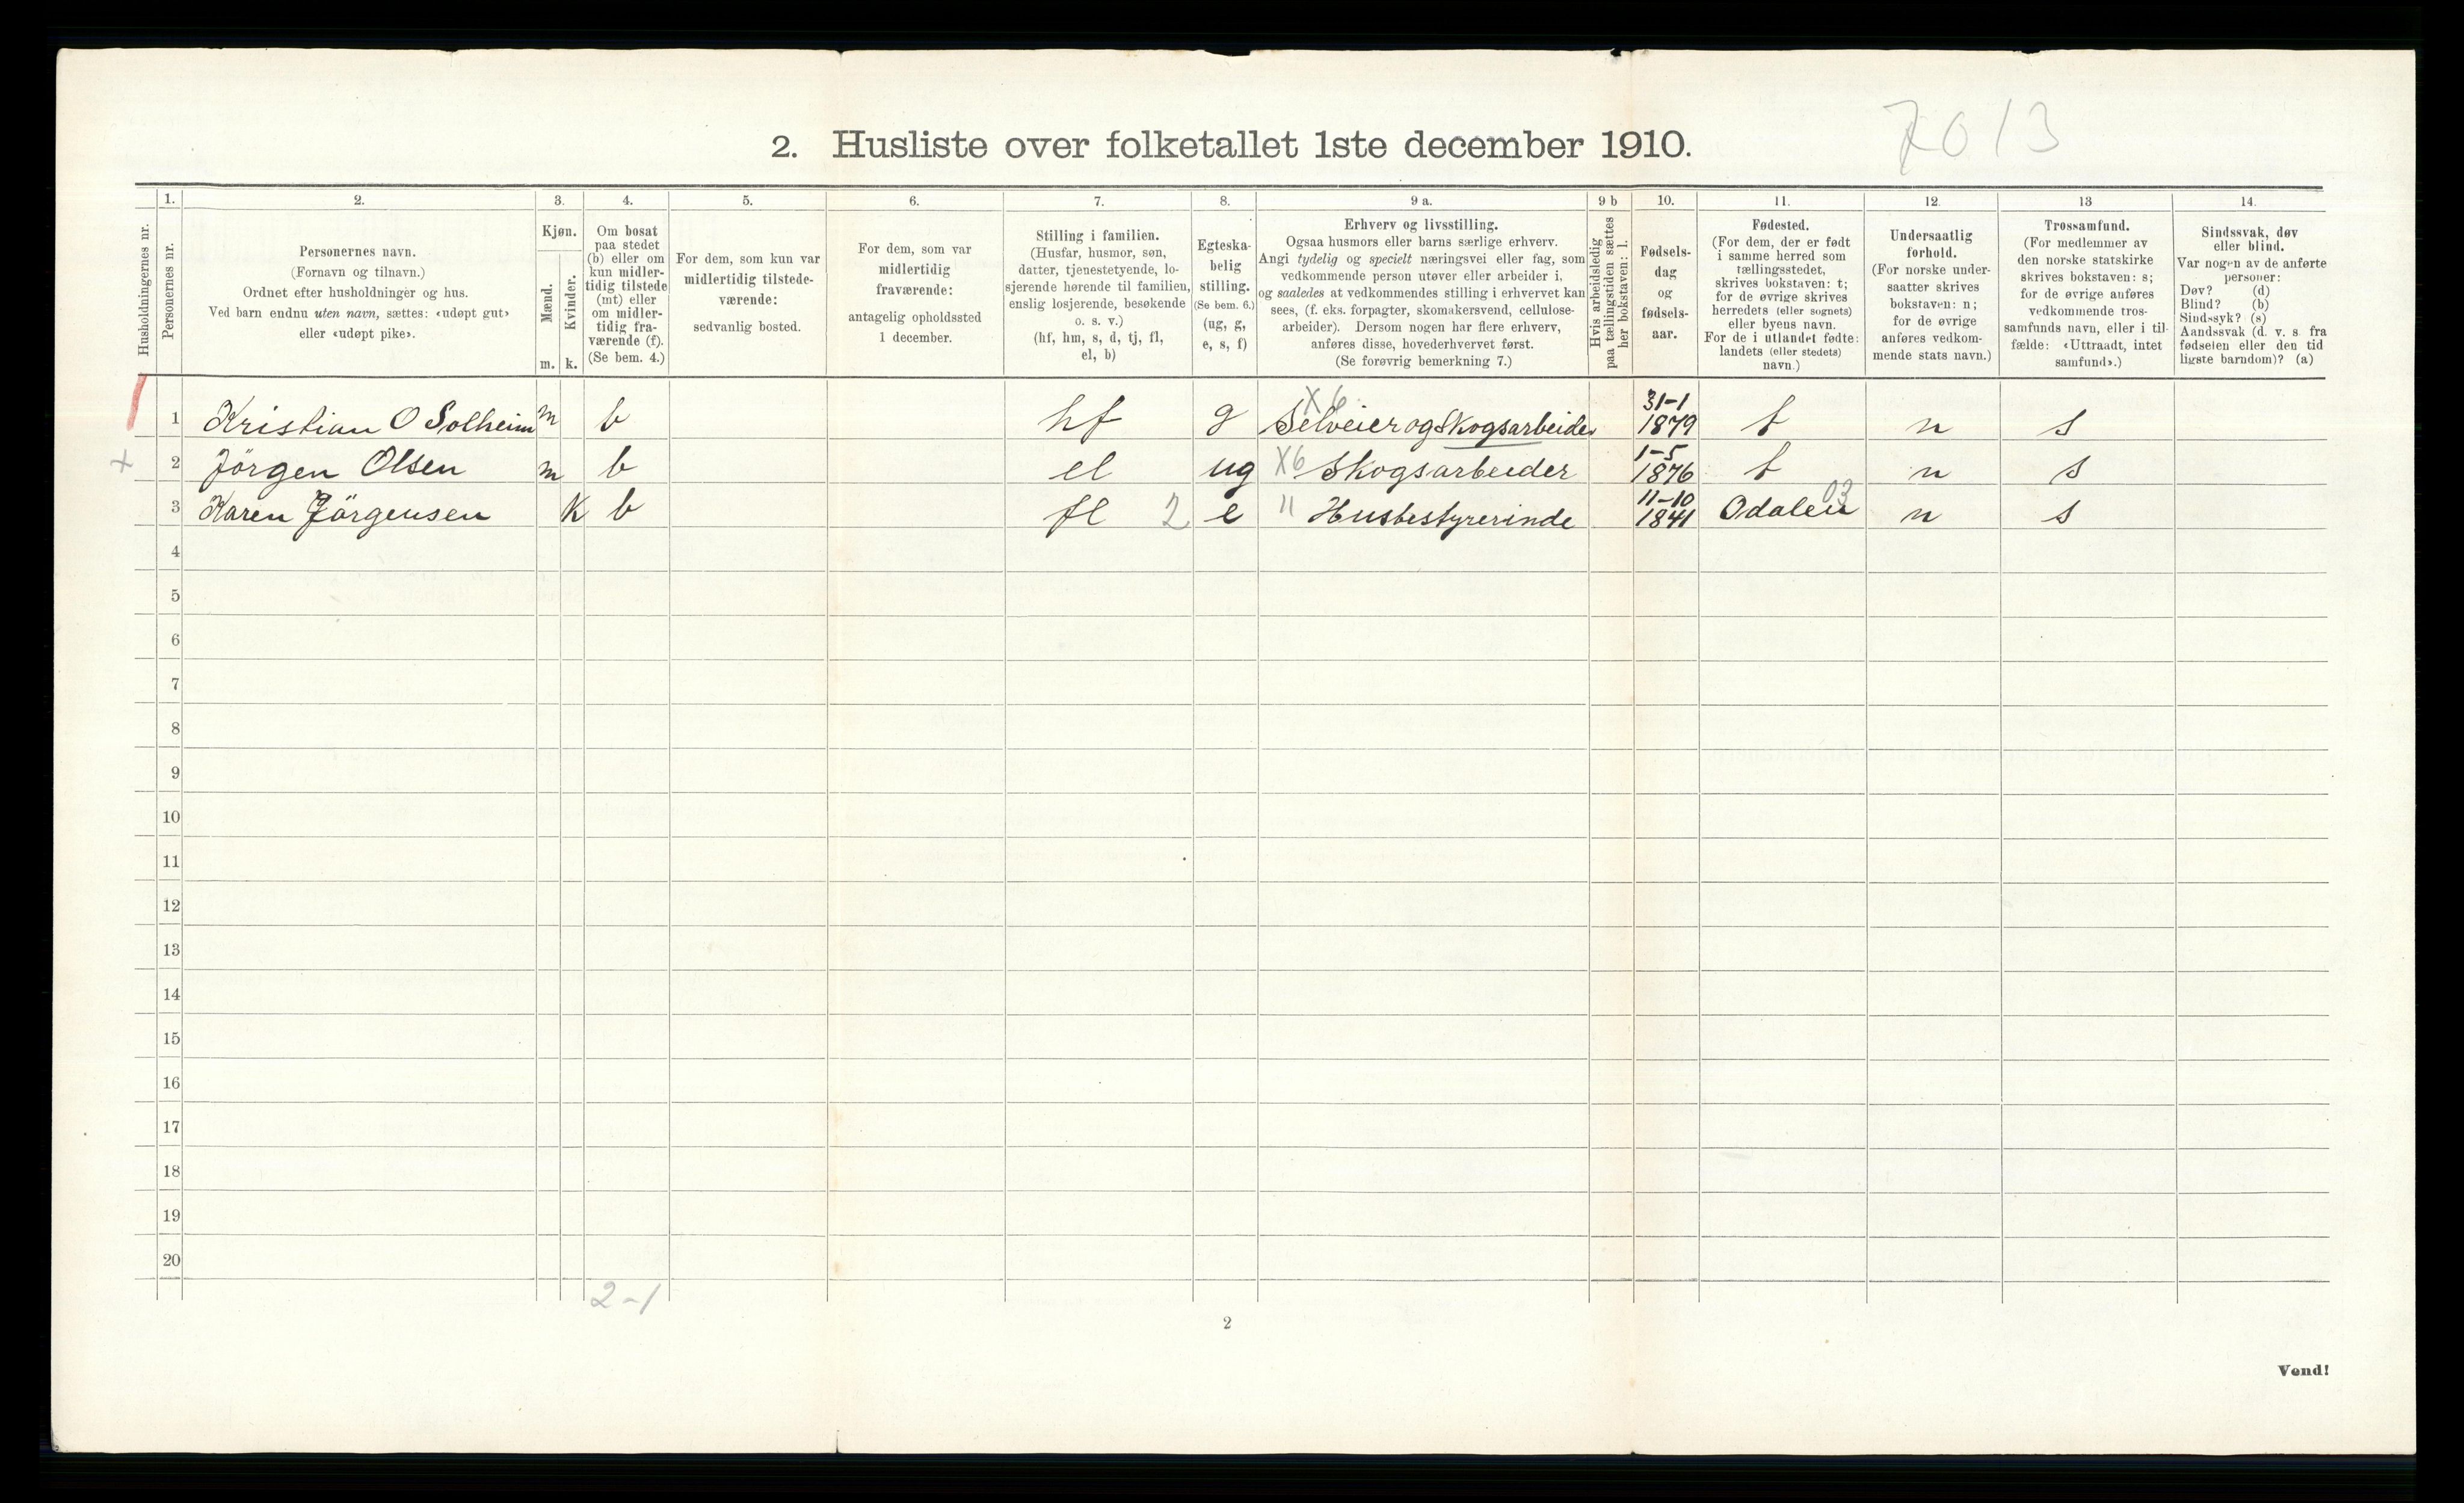 7013
2. Husliste over folketallet 1ste december 1910.
Husholdningernes nr.
1.
Personernes nr.
2.
Personernes navn.
(Fornavn og tilnavn.)
Ordnet efter husholdninger og hus.
Ved barn endnu uten navn, sættes: «udøpt gut»
eller «udøpt pike».
3.
Kjøn.
Mænd.
Kvinder.
m. k.
4.
Om bosat
paa stedet
(b) eller om
kun midler-
tidig tilstede
(mt) eller
om midler-
tidig fra-
værende (f).
(Se bem. 4.)
5.
For dem, som kun var
midlertidig tilstede-
værende:
sedvanlig bosted.
6.
For dem, som var
midlertidig
fraværende:
antagelig opholdssted
1 december.
7.
Stilling i familien.
(Husfar, husmor, søn,
datter, tjenestetyende, lo-
sjerende hørende til familien,
enslig losjerende, besøkende
o. s. v.)
(hf, hm, s, d, tj, fl,
el, b)
8.
Egteska-
belig
stilling.
(Se bem. 6.)
(ug, g,
e, s, f)
9 a.
Erhverv og livsstilling.
Ogsaa husmors eller barns særlige erhverv.
Angi tydelig og specielt næringsvei eller fag, som
vedkommende person utøver eller arbeider i,
og saaledes at vedkommendes stilling i erhvervet kan
sees, (f. eks. forpagter, skomakersvend, cellulose-
arbeider). Dersom nogen har flere erhverv,
anføres disse, hovederhvervet først.
(Se forøvrig bemerkning 7.)
9 b
Hvis arbeidsledig
paa tællingstiden sættes
her bokstaven: l.
10.
Fødsels-
dag
og
fødsels-
aar.
11.
Fødested.
(For dem, der er født
i samme herred som
tællingsstedet,
skrives bokstaven: t;
for de øvrige skrives
herredets (eller sognets)
eller byens navn.
For de i utlandet fødte:
landets (eller stedets)
navn.)
12.
Undersaatlig
forhold.
(For norske under-
saatter skrives
bokstaven: n;
for de øvrige
anføres vedkom-
mende stats navn.)
13
Trossamfund.
(For medlemmer av
den norske statskirke
skrives bokstaven: s;
for de øvrige anføres
vedkommende tros-
samfunds navn, eller i til-
fælde: «Uttraadt, intet
samfund».)
14.
Sindssvak, døv
eller blind.
Var nogen av de anførte
personer:
Døv? (d)
Blind? (b)
Sindssyk? (s)
Aandssvak (d. v. s. fra
fødselen eller den tid
ligste barndom)? (a)
1 Kristian O Solheim m b hf g X6 Selveier og Skogsarbeider 31-1 1879 t n s
+ 2 Jörgen Olsen m b el ug X6 Skogsarbeider 1-5 1876 t n s
3 Karen Jörgensen k b fl 2 e " Husbestyrerinde 11-10 1841 Odalen 03 n s
4
5
6
7
8
9
10
11
12
13
14
15
16
17
18
19
20
2-1
2
Vend!